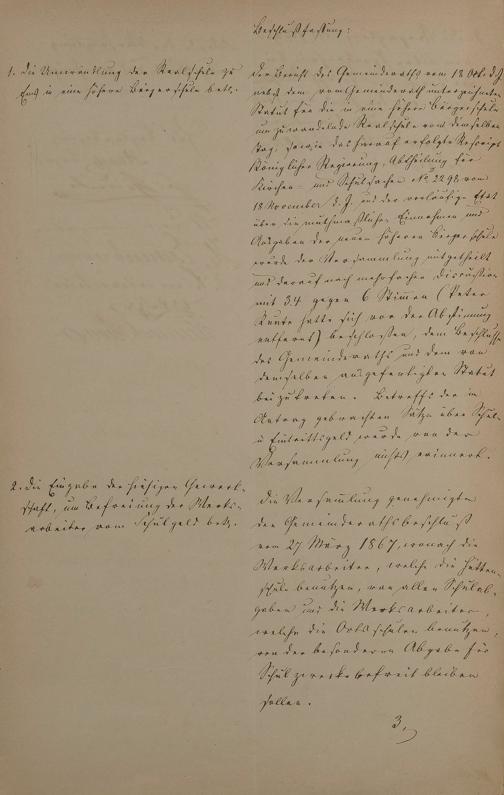 Beschlußfassung:
1. Die Umwandlung der Realschule zu
Ems in eine höhere Bürgerschule betr.
Der Bericht des Gemeinderaths vom 18 Octbr d. J.
nebst dem vom Gemeinderath unterzeichneten
Statut für die in eine höhere Bürgerschule
umzuwandelnde Realschule vom demselben
Tag, sowie das hierauf erfolgte Rescript
Königlicher Regierung, Abtheilung für
Kirchen- und Schulsachen No 2298 vom
18 November d. J. und der vorläufige Etat
über die muthmaßlichen Einnahmen und
Ausgaben der neuen höheren Bürgerschule
wurde der Versammlung mitgetheilt
und darauf nach mehrfacher Discussion
mit 34 gegen 6 Stimmen (Peter
hatte sich vor der Abstimmung
entfernt) beschlossen, dem Beschlusse
des Gemeinderaths und dem von
demselben ausgefertigten Statut
beizutreten. Betreffs der in
Antrag gebrachten Sätze über Schul-
u Eintrittsgeld wurde von der
Versammlung nichts erinnert.
2. Die Eingabe der hiesigen Gewerk-
schaft, um Befreiung der Werks-
arbeiter vom Schulgeld betr.
Die Versammlung genehmigte
den Gemeinderathsbeschluß
vom 27 März 1867, wonach die
Werksarbeiter, welche die Hütten-
schule benutzen, von allen Schulab-
gaben und die Werksarbeiter,
welche die Ortsschulen benutzen,
von der besonderen Abgabe für
Schulzwecke befreit bleiben
sollen.
3,